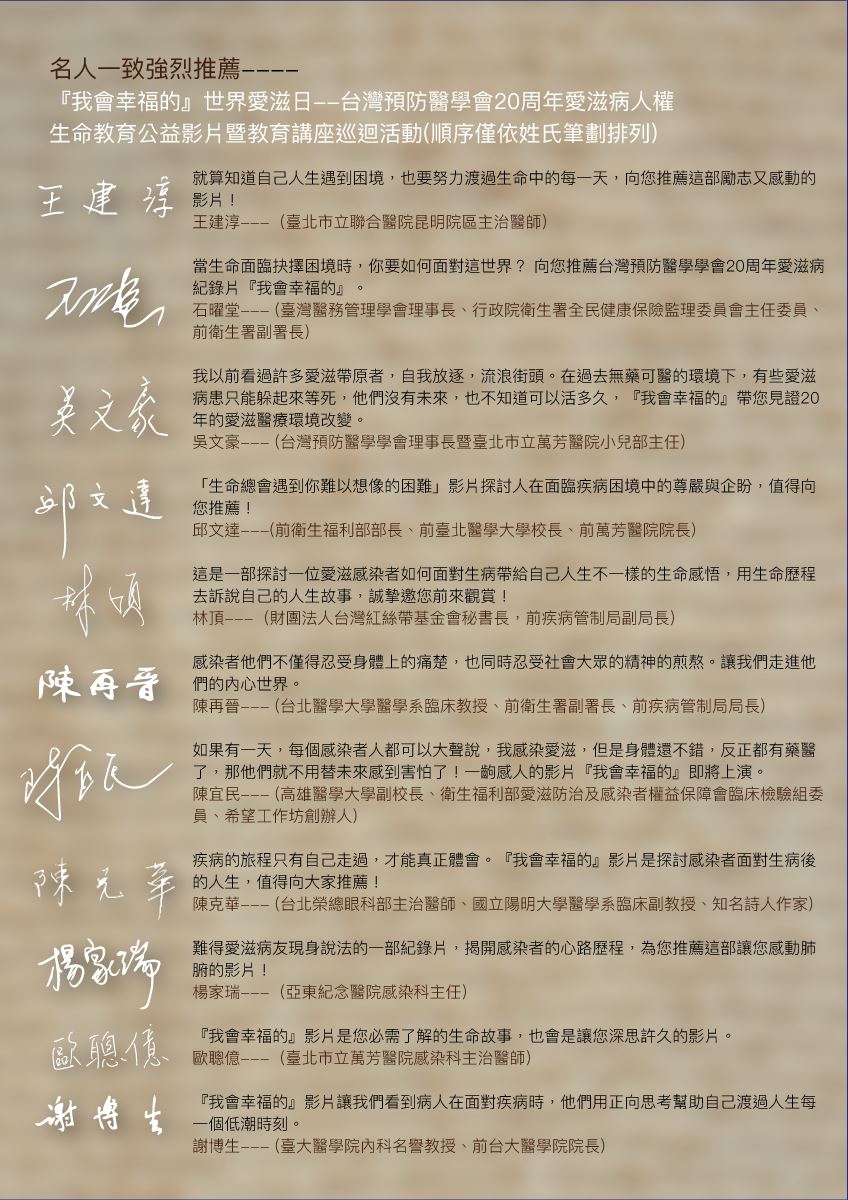 名人一致強烈推薦----
『我會幸福的』世界愛滋日--台灣預防醫學會20周年愛滋病人權
生命教育公益影片暨教育講座巡迴活動(順序僅依姓氏筆劃排列)
王建淳
就算知道自己人生遇到困境，也要努力渡過生命中的每一天，向您推薦這部勵志又感動的
影片！
王建淳---（臺北市立聯合醫院昆明院區主治醫師）
當生命面臨抉擇困境時，你要如何面對這世界？ 向您推薦台灣預防醫學學會20周年愛滋病
紀錄片『我會幸福的』。
石曜堂---(臺灣醫務管理學會理事長、行政院衛生署全民健康保險監理委員會主任委員、
前衛生署副署長)
吳文豪
我以前看過許多愛滋帶原者，自我放逐，流浪街頭。在過去無藥可醫的環境下，有些愛滋
病患只能躲起來等死，他們沒有未來，也不知道可以活多久，『我會幸福的』帶您見證20
年的愛滋醫療環境改變。
吳文豪---(台灣預防醫學學會理事長暨臺北市立萬芳醫院小兒部主任)
邱文達
「生命總會遇到你難以想像的困難」影片探討人在面臨疾病困境中的尊嚴與企盼，值得向
您推薦！
邱文達---(前衛生福利部部長、前臺北醫學大學校長、前萬芳醫院院長)
林頂
這是一部探討一位愛滋感染者如何面對生病帶給自己人生不一樣的生命感悟，用生命歷程
去訴說自己的人生故事，誠摯邀您前來觀賞！
林頂---（財團法人台灣紅絲帶基金會秘書長，前疾病管制局副局長）
陳再晉
感染者他們不僅得忍受身體上的痛楚，也同時忍受社會大眾的精神的煎熬。讓我們走進他
們的內心世界。
陳再晉---(台北醫學大學醫學系臨床教授、前衛生署副署長、前疾病管制局局長)
陳宜民
如果有一天，每個感染者人都可以大聲說，我感染愛滋，但是身體還不錯，反正都有藥醫
了，那他們就不用替未來感到害怕了！一齣感人的影片『我會幸福的』即將上演。
陳宜民---(高雄醫學大學副校長、衛生福利部愛滋防治及感染者權益保障會臨床檢驗組委
員、希望工作坊創辦人)
陳克華
疾病的旅程只有自己走過，才能真正體會。『我會幸福的』影片是探討感染者面對生病後
的人生，值得向大家推薦！
陳克華---(台北榮總眼科部主治醫師、國立陽明大學醫學系臨床副教授、知名詩人作家)
楊家瑞
難得愛滋病友現身說法的一部紀錄片，揭開感染者的心路歷程，為您推薦這部讓您感動肺
腑的影片！
楊家瑞---（亞東紀念醫院感染科主任）
歐聰億
『我會幸福的』影片是您必需了解的生命故事，也會是讓您深思許久的影片。
歐聰億---（臺北市立萬芳醫院感染科主治醫師）
謝博生
『我會幸福的』影片讓我們看到病人在面對疾病時，他們用正向思考幫助自己渡過人生每
一個低潮時刻。
謝博生---(臺大醫學院內科名譽教授、前台大醫學院院長)